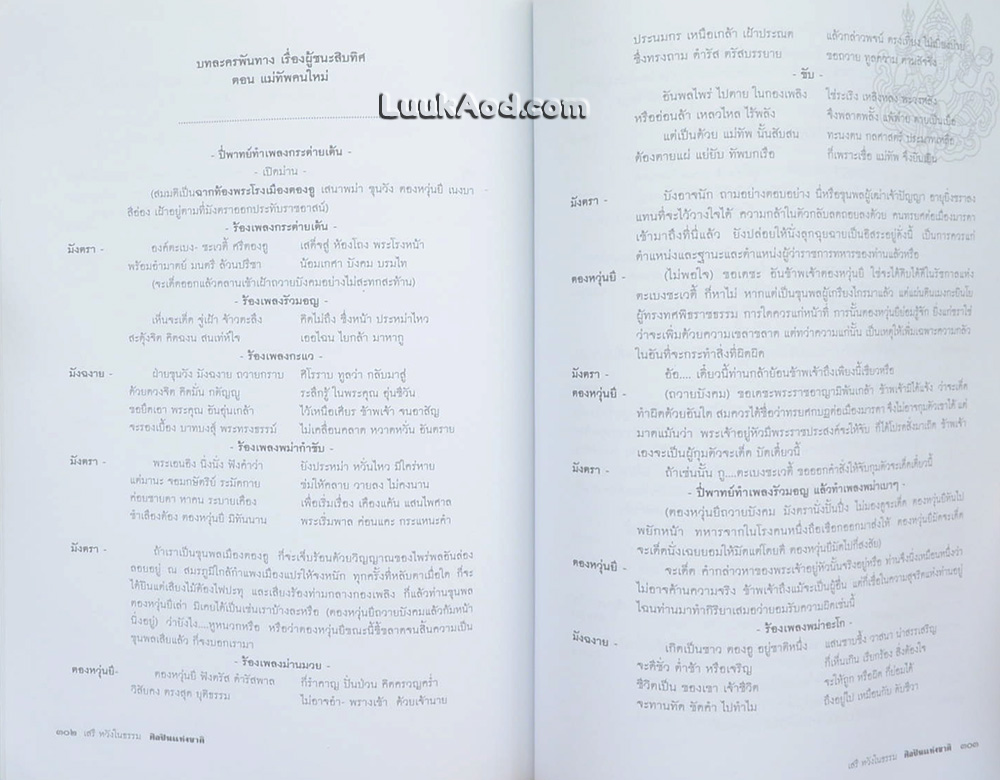 บทละครพันทาง เรื่องผู้ชนะสิบทิศ
ตอน แม่ทัพคนใหม่
LuukAod.com
- ปี่พาทย์ทำเพลงกระต่ายเต้น -
- เปิดม่าน -
(สมมติเป็นฉากท้องพระโรงเมืองตองอู เสนาพม่า ขุนวัง ตองหวุ่นยี เนงบา
สีอ่อง เฝ้าอยู่ตามที่มังตราออกประทับราชอาสน์)
- ร้องเพลงกระต่ายเต้น -
มังตรา - องค์ตะเบง- ชะเวตี้ ศรีตองอู เสด็จสู่ ห้องโถง พระโรงหน้า
พร้อมอำมาตย์ มนตรี ล้วนปรีชา น้อมเกศา บังคม บรมไท
(จะเด็ดออกแล้วคลานเข้าเฝ้าถวายบังคมอย่างไม่สะทกสะท้าน)
- ร้องเพลงรัวมอญ -
เห็นจะเด็ด จู่เฝ้า จ้าวตะลึง คิดไม่ถึง ซึ่งหน้า ประหม่าไหว
สะดุ้งจิต คิดฉงน สนเท่ห์ใจ เออไฉน ไยกล้า มาหากู
- ร้องเพลงกะแว -
มังฉงาย - ฝ่ายขุนวัง มังฉงาย ถวายกราบ ศิโรราบ ทูลว่า กลับมาสู่
ด้วยดวงจิต คิดมั่น กตัญญู ระลึกรู้ ในพระคุณ อุ่นชีวัน
ขอยึดเอา พระคุณ อันอุ่นเกล้า ไว้เหนือเศียร ข้าพเจ้า จนอาสัญ
จะรองเบื้อง บาทบงสุ์ พระทรงธรรม์ ไม่เคลื่อนคลาด หวาดหวั่น อันตราย
- ร้องเพลงพม่ากำชับ -
มังตรา - พระเอนอิง นิ่งนั่ง ฟังคำว่า ยังประหม่า หวั่นไหว มิใคร่หาย
แต่มานะ จอมกษัตริย์ ระมัดกาย ข่มให้คลาย วายลง ไม่คงนาน
ค่อยชายตา หาคน ระบายเคือง เพื่อเริ่มเรื่อง เคืองแค้น แสนไพศาล
ชำเลืองต้อง ตองหวุ่นยี มิทันนาน พระเริ่มพาล ค่อนแคะ กระแหนะคำ
มังตรา - ถ้าเราเป็นขุนพลเมืองตองอู ก็จะเจ็บร้อนด้วยวิญญาณของไพร่พลอันล่อง
ลอยอยู่ ณ สมรภูมิใกล้กำแพงเมืองแปรให้จงหนัก ทุกครั้งที่หลับตาเมื่อใด ก็จะ
ได้ยินแต่เสียงไม้ต้องไฟปะทุ และเสียงร้องท่ามกลางกองเพลิง ก็แล้วท่านขุนพล
ตองหวุ่นยีเล่า มิเคยได้เป็นเช่นเราบ้างละหรือ (ตองหวุ่นยีถวายบังคมแล้วก้มหน้า
นิ่งอยู่) ว่ายังไง....หูหนวกหรือ หรือว่าตองหวุ่นยีขณะนี้ขี้ขลาดจนสิ้นความเป็น
ขุนพลเสียแล้ว ก็จงบอกเรามา
- ร้องเพลงม่านมวย -
ตองหวุ่นยี- ตองหวุ่นยี ฟังตรัส ดำรัสพาล ก็รำคาญ ปั่นป่วน คิดครวญคร่ำ
วิสัยคง ตรงสุด ยุติธรรม ไม่อาจอำ- พรางเช้า ด้วยเจ้านาย
๓๐๒ เสรี หวังในธรรม ศิลปินแห่งชาติ
ประนมกร เหนือเกล้า เฝ้าประณต แล้วกล่าวพจน์ ตรงเที่ยง
ซึ่งทรงถาม ดำรัส ตรัสบรรยาย ขอถวาย ทูลความ ตามสัจจัง
- ขับ -
อันพลไพร่ ไปตาย ในกองเพลิง ใช่ระเริง เหลิงพลบ
หรืออ่อนล้า เหลวไหล ไร้พลัง จึงพลาดพลั้ง แพ้พ่าย ตายเป็นเบือ
แต่เป็นด้วย แม่ทัพ นั้นสับสน ทะนงตน กลศาสตร์
ต้องตายแผ่ แย่ยับ ทัพบกเรือ ก็เพราะเชื่อ แม่ทัพ จึงยับเยิน
มังตรา - บังอาจนัก ถามอย่างตอบอย่าง นี่หรือขุนพลผู้เฒ่าเจ้าปัญญา อายุยิ่งชราลง
แทนที่จะไว้วางใจได้ ความกล้าในตัวกลับลดถอยลงด้วย คนทรยศต่อเมืองมารดา
เข้ามาถึงที่นี่แล้ว ยังปล่อยให้นั่งลุกฉุยฉายเป็นอิสระอยู่ดังนี้ เป็นการควรแก่
ตำแหน่งและฐานะและตำแหน่งผู้ว่าราชการทหารของท่านแล้วหรือ
ตองหวุ่นยี - (ไม่พอใจ) ขอเดชะ อันข้าพเจ้าตองหวุ่นยี ใช่จะได้ดิบได้ดีในรัชกาลแห่ง
ตะเบงชะเวตี้ ก็หาไม่ หากแต่เป็นขุนพลผู้เกรียงไกรมาแล้ว แต่แผ่นดินเมงกะยินโย
ผู้ทรงทศพิธราชธรรม การใดควรแก่หน้าที่ การนั้นตองหวุ่นยีย่อมรู้จัก ยิ่งแก่ชราใช่
ว่าจะเพิ่มด้วยความเขลาขลาด แต่ทว่าความแก่นั้น เป็นเหตุให้เพิ่มเฉพาะความกลัว
ในอันที่จะกระทำสิ่งที่ผิดผิด
มังตรา - อ้อ.... เดี๋ยวนี้ท่านกล้าย้อนข้าพเจ้าถึงเพียงนี้เชียวหรือ
ตองหวุ่นยี - (ถวายบังคม) ขอเดชะพระราชอาญามิพ้นเกล้า ข้าพเจ้ามิได้แจ้ง ว่าจะเด็ด
ทำผิดด้วยอันใด สมควรได้ชื่อว่าทรยศกบฏต่อเมืองมารดา จึงไม่อาจกุมตัวเขาได้ แต่
มาดแม้นว่า พระเจ้าอยู่หัวมีพระราชประสงค์จะให้จับ ก็ได้โปรดสั่งมาเถิด ข้าพเจ้า
เองจะเป็นผู้กุมตัวจะเด็ด บัดเดี๋ยวนี้
มังตรา - ถ้าเช่นนั้น กู....ตะเบงชะเวตี้ ขอออกคำสั่งให้จับกุมตัวจะเด็ดเดี๋ยวนี้
- ปี่พาทย์ทำเพลงรัวมอญ แล้วทำเพลงพม่าเบาๆ -
(ตองหวุ่นยีถวายบังคม มังตรานั่งปั้นปึ่ง ไม่มองดูจะเด็ด ตองหวุ่นยีหันไป
พยักหน้า ทหารจากในโรงคนหนึ่งถือเชือกออกมาส่งให้ ตองหวุ่นยีมัดจะเด็ด
จะเด็ดนั่งเฉยยอมให้มัดแต่โดยดี ตองหวุ่นยีมัดไปก็สงสัย)
ตองหวุ่นยี - จะเด็ด คำกล่าวหาของพระเจ้าอยู่หัวนั้นจริงอยู่หรือ ท่านจึงนิ่งเหมือนหนึ่งว่า
ไม่อาจค้านความจริง ข้าพเจ้าถึงแม้จะเป็นผู้อื่น แต่ก็เชื่อในความสุจริตแห่งท่านอยู่
ไฉนท่านมาทำกิริยาเสมอว่ายอมรับความผิดเช่นนี้
- ร้องเพลงพม่าอะโก -
มังฉงาย - เกิดเป็นชาว ตองอู อยู่ชาติหนึ่ง แสนซาบซึ้ง วาสนา น่าสรรเสริญ
จะดีชั่ว ต่ำช้า หรือเจริญ ก็เห็นเกิน เรียกร้อง สิ่งต้องใจ
ชีวิตเป็น ของเขา เจ้าชีวิต จะให้ถูก หรือผิด ก็ย่อมได้
จะทานทัด ขัดคำ ไปทำไม ถึงอยู่ไป เหมือนกับ ดับชีวา
เสรี หวังในธรรม ศิลปินแห่งชาติ ๓๐๓